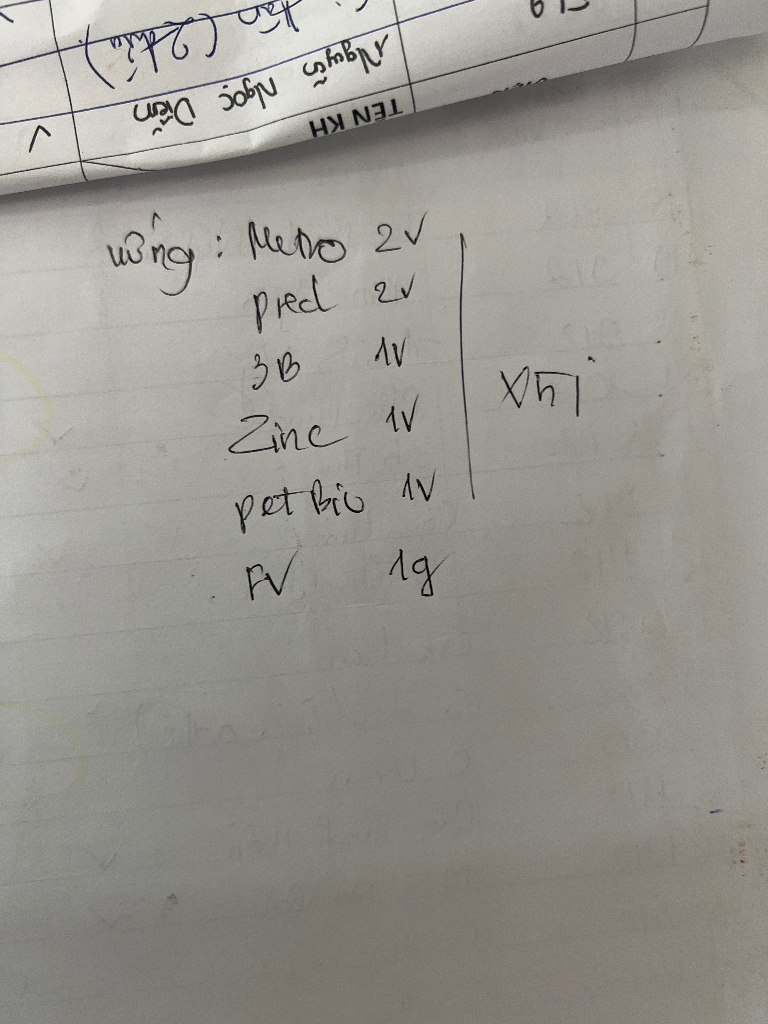 (2 đứa).
Nguyễn Ngọc Diễm
TÊN KH
uống : Metro 2V
pred 2V
3B 1V
Zinc 1V
pet Bio 1V
FV 1g